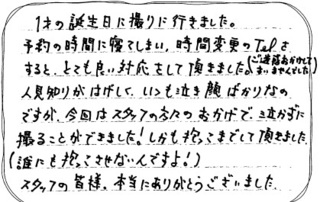 1才の誕生日に撮りに行きました。
予約の時間に寝てしまい、時間変更のTelを
すると、とても良い対応をして頂きました。(ご迷惑おかけしてすいませんでした)
人見知りがはげしく、いつも泣き顔ばかりなの
ですが、今回はスタッフの方々のおかげで、泣かずに
撮ることができました!しかも抱っこまでして頂きました
(誰にも抱っこさせないんですよ!)
スタッフの皆様、本当にありがとうございました